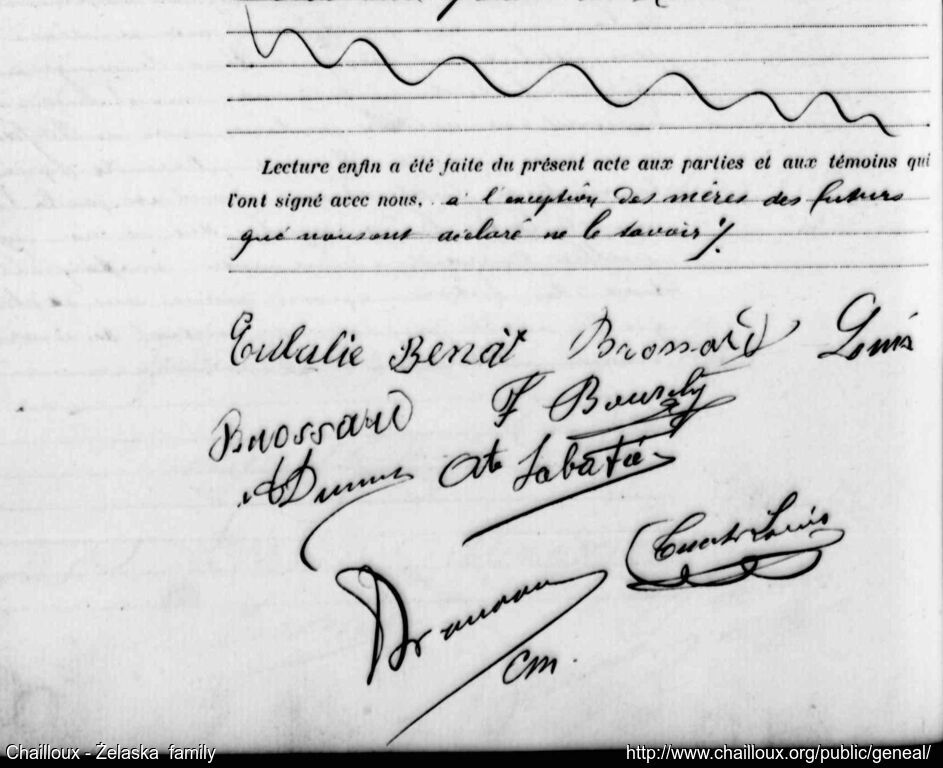 Lecture enfin a été faite du présent acte aux parties et aux témoins qui
l'ont signé avec nous, à l'exception des mères des futurs
qui nous ont déclaré ne le savoir ./.
Eulalie Benoît Brossard Louis
Brossard F Boursely
Ate Sabatié
Louis
CM.
Chailloux - Żelaska family
http://www.chailloux.org/public/geneal/